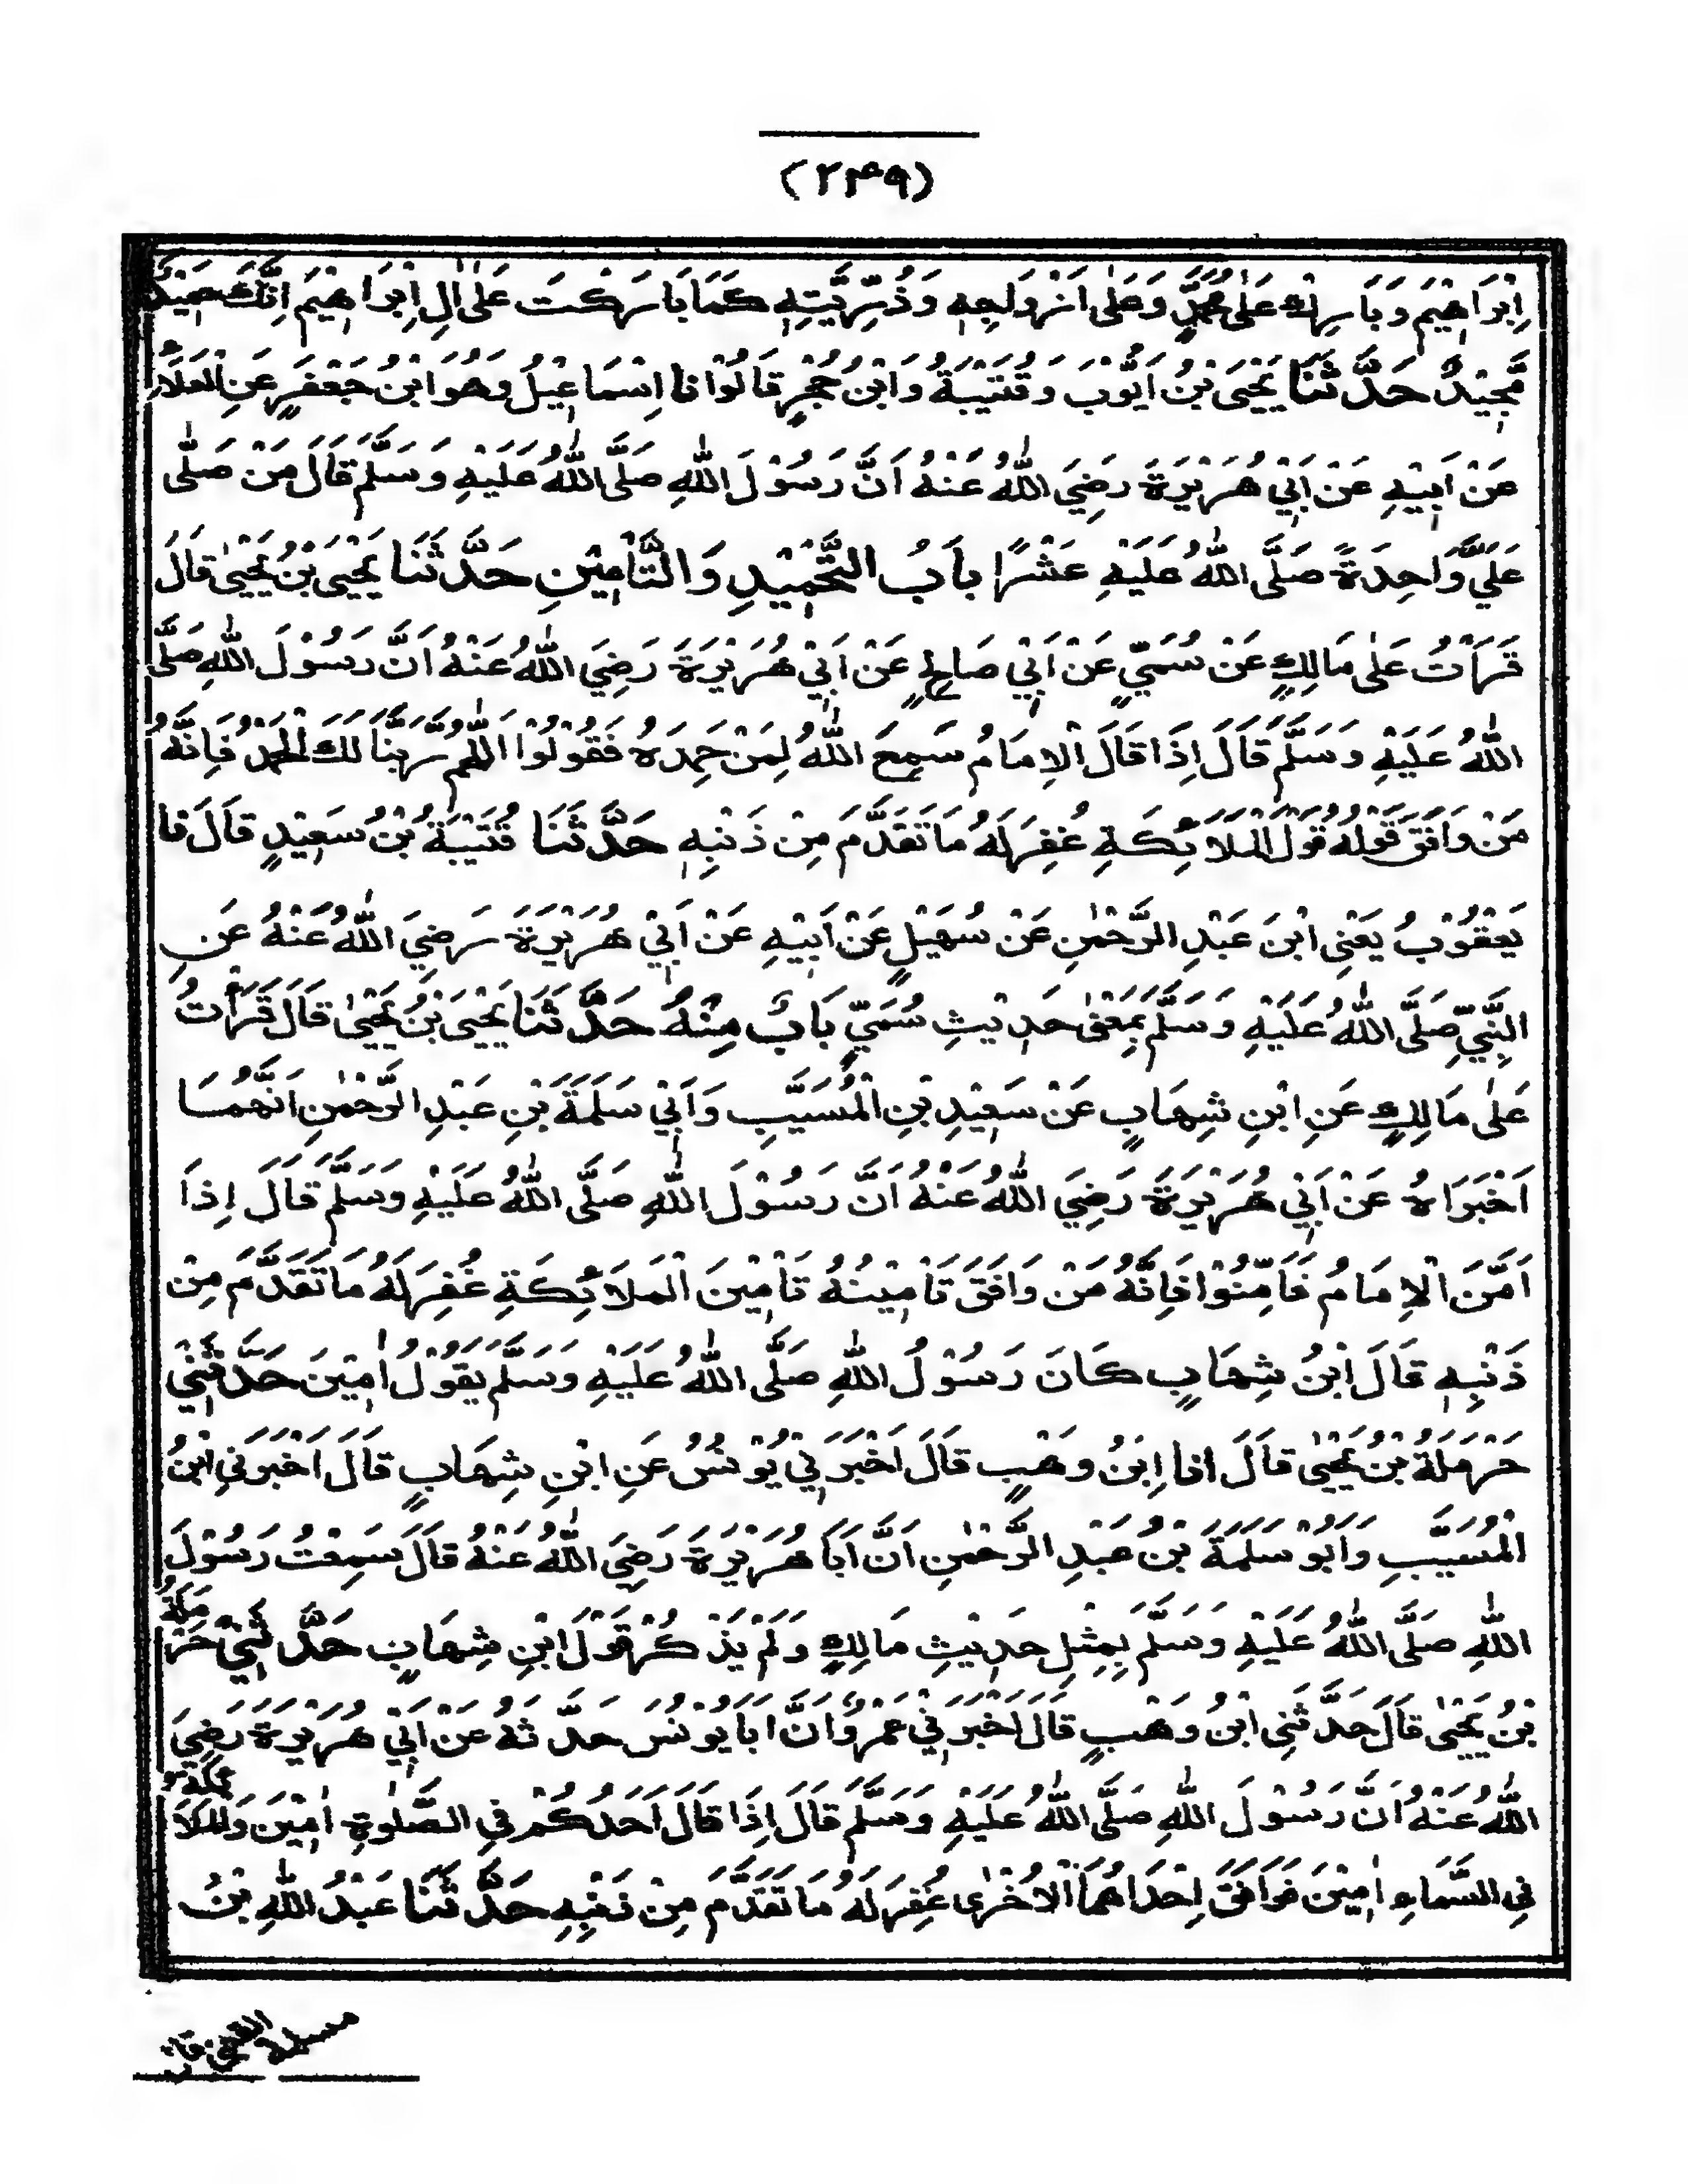 (۲۴۹)
اِبْرَاهِيْمَ وَبَارِكْ عَلٰى مُحَمَّدٍ وَعَلٰى اَزْوَاجِهٖ وَذُرِّيَّتِهٖ كَمَا بَارَكْتَ عَلٰى اٰلِ اِبْرَاهِيْمَ اِنَّكَ حَمِيْدٌ
مَّجِيْدٌ حَدَّثَنَا يَحْيَى بْنُ اَيُّوْبَ وَقُتَيْبَةُ وَابْنُ حُجْرٍ قَالُوْا نا اِسْمَاعِيْلُ وَهُوَ ابْنُ جَعْفَرٍ عَنِ الْعَلَاءِ
عَنْ اَبِيْهِ عَنْ اَبِيْ هُرَيْرَةَ رَضِيَ اللّٰهُ عَنْهُ اَنَّ رَسُوْلَ اللّٰهِ صَلَّى اللّٰهُ عَلَيْهِ وَسَلَّمَ قَالَ مَنْ صَلّٰى
عَلَيَّ وَاحِدَةً صَلَّى اللّٰهُ عَلَيْهِ عَشْرًا بَابُ التَّحْمِيْدِ وَالتَّأْمِيْنِ حَدَّثَنَا يَحْيَى بْنُ يَحْيٰى قَالَ
قَرَأْتُ عَلٰى مَالِكٍ عَنْ سُمَيٍّ عَنْ اَبِيْ صَالِحٍ عَنْ اَبِيْ هُرَيْرَةَ رَضِيَ اللّٰهُ عَنْهُ اَنَّ رَسُوْلَ اللّٰهِ صَلَّى
اللّٰهُ عَلَيْهِ وَسَلَّمَ قَالَ اِذَا قَالَ الْاِمَامُ سَمِعَ اللّٰهُ لِمَنْ حَمِدَهُ فَقُوْلُوْا اللّٰهُمَّ رَبَّنَا لَكَ الْحَمْدُ فَاِنَّهُ
مَنْ وَافَقَ قَوْلُهُ قَوْلَ الْمَلَائِكَةِ غُفِرَ لَهُ مَا تَقَدَّمَ مِنْ ذَنْبِهٖ حَدَّثَنَا قُتَيْبَةُ بْنُ سَعِيْدٍ قَالَ نا
يَعْقُوْبُ يَعْنِى ابْنَ عَبْدِ الرَّحْمٰنِ عَنْ سُهَيْلٍ عَنْ اَبِيْهِ عَنْ اَبِيْ هُرَيْرَةَ رَضِيَ اللّٰهُ عَنْهُ عَنِ
النَّبِيِّ صَلَّى اللّٰهُ عَلَيْهِ وَسَلَّمَ بِمَعْنٰى حَدِيْثِ سُمَيٍّ بَابٌ مِنْهُ حَدَّثَنَا يَحْيَى بْنُ يَحْيٰى قَالَ قَرَأْتُ
عَلٰى مَالِكٍ عَنِ ابْنِ شِهَابٍ عَنْ سَعِيْدِ بْنِ الْمُسَيَّبِ وَاَبِيْ سَلَمَةَ بْنِ عَبْدِ الرَّحْمٰنِ اَنَّهُمَا
اَخْبَرَاهُ عَنْ اَبِيْ هُرَيْرَةَ رَضِيَ اللّٰهُ عَنْهُ اَنَّ رَسُوْلَ اللّٰهِ صَلَّى اللّٰهُ عَلَيْهِ وَسَلَّمَ قَالَ اِذَا
اَمَّنَ الْاِمَامُ فَاَمِّنُوْا فَاِنَّهُ مَنْ وَافَقَ تَأْمِيْنُهُ تَأْمِيْنَ الْمَلَائِكَةِ غُفِرَ لَهُ مَا تَقَدَّمَ مِنْ
ذَنْبِهٖ قَالَ ابْنُ شِهَابٍ كَانَ رَسُوْلُ اللّٰهِ صَلَّى اللّٰهُ عَلَيْهِ وَسَلَّمَ يَقُوْلُ اٰمِيْنَ حَدَّثَنِيْ
حَرْمَلَةُ بْنُ يَحْيٰى قَالَ انا اِبْنُ وَهْبٍ قَالَ اَخْبَرَنِيْ يُوْنُسُ عَنِ ابْنِ شِهَابٍ قَالَ اَخْبَرَنِي ابْنُ
الْمُسَيَّبِ وَاَبُوْ سَلَمَةَ بْنُ عَبْدِ الرَّحْمٰنِ اَنَّ اَبَا هُرَيْرَةَ رَضِيَ اللّٰهُ عَنْهُ قَالَ سَمِعْتُ رَسُوْلَ
اللّٰهِ صَلَّى اللّٰهُ عَلَيْهِ وَسَلَّمَ بِمِثْلِ حَدِيْثِ مَالِكٍ وَلَمْ يَذْكُرْ قَوْلَ ابْنِ شِهَابٍ حَدَّثَنِيْ حَرْمَلَةُ
بْنُ يَحْيٰى قَالَ حَدَّثَنِى ابْنُ وَهْبٍ قَالَ اَخْبَرَنِيْ عَمْرٌو اَنَّ اَبَا يُوْنُسَ حَدَّثَهُ عَنْ اَبِيْ هُرَيْرَةَ رَضِيَ
اللّٰهُ عَنْهُ اَنَّ رَسُوْلَ اللّٰهِ صَلَّى اللّٰهُ عَلَيْهِ وَسَلَّمَ قَالَ اِذَا قَالَ اَحَدُكُمْ فِي الصَّلٰوةِ اٰمِيْنَ وَالْمَلَائِكَةُ
فِي السَّمَاءِ اٰمِيْنَ فَوَافَقَ اِحْدَاهُمَا الْاُخْرٰى غُفِرَ لَهُ مَا تَقَدَّمَ مِنْ ذَنْبِهٖ حَدَّثَنَا عَبْدُ اللّٰهِ بْنُ
مسلمة القعنبي قال